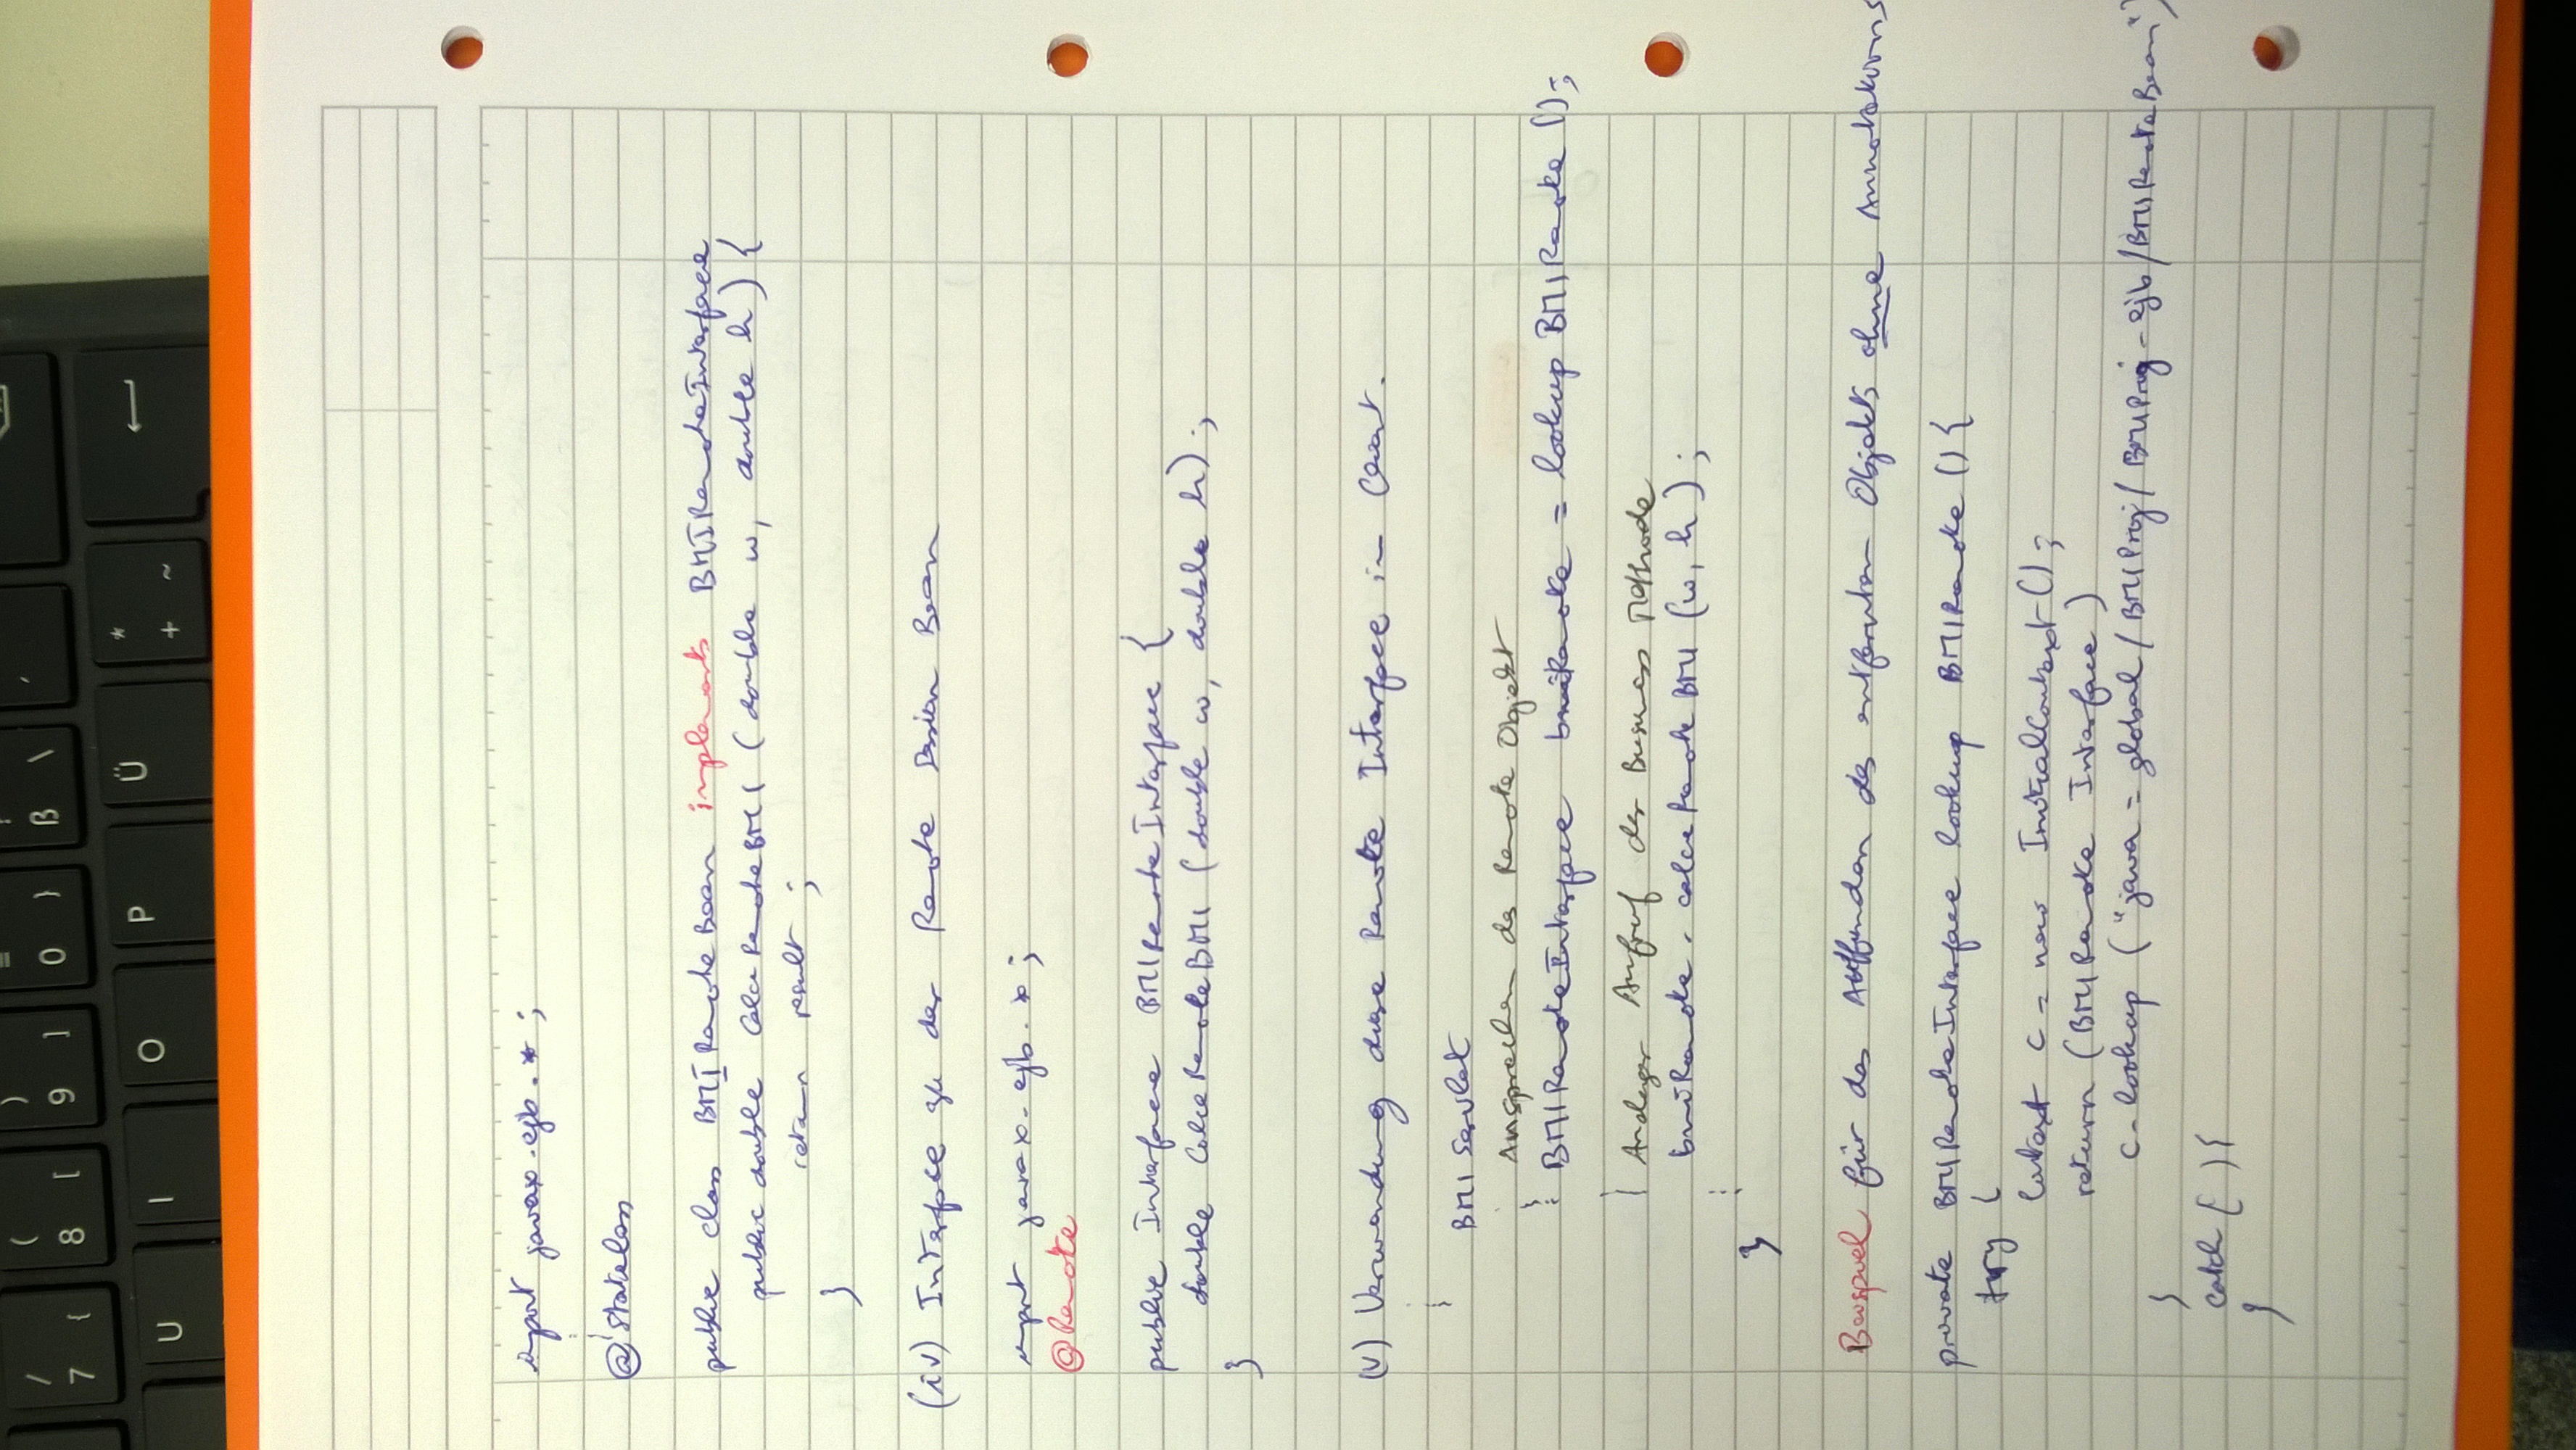 / ( ) =
7 { 8 [ 9 ] 0 } ß \
U I O P Ü * + ~
import javax.ejb.*;
@Stateless
public class BMIRemoteBean implements BMIRemoteInterface
public double CalcRemoteBMI (double w, double h) {
return result ;
}
(iv) Interface zu der Remote Session Bean
import javax.ejb.*;
@Remote
public Interface BMIRemoteInterface {
double CalcRemoteBMI (double w, double h);
}
(v) Verwendung diese Remote Interface im Client.
BMI Servlet
Ansprechen des Remote Objekt
BMIRemoteInterface bmiRemote = lookup BMIRemote ();
Analoger Aufruf der Business Methode
bmiRemote. calcRemoteBMI (w, h);
}
Beispiel für das Auffinden des entfernten Objekts ohne Annotations
private BMIRemoteInterface lookup BMIRemote () {
try {
Context c = new InitialContext();
return (BMIRemote Interface)
c.lookup ("java = global / BMIProj / BMIProj-ejb /BMIRemoteBean")
}
catch ( ) {
}